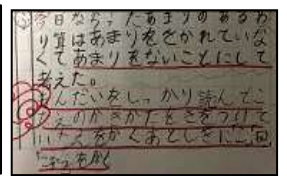 今日ならったあまりのあるわ
り算はあまりをきかれていな
くてあまりをないことにして
考えた。
もんだいをしっかり読んでこ
たえのかきかたをきをつけて